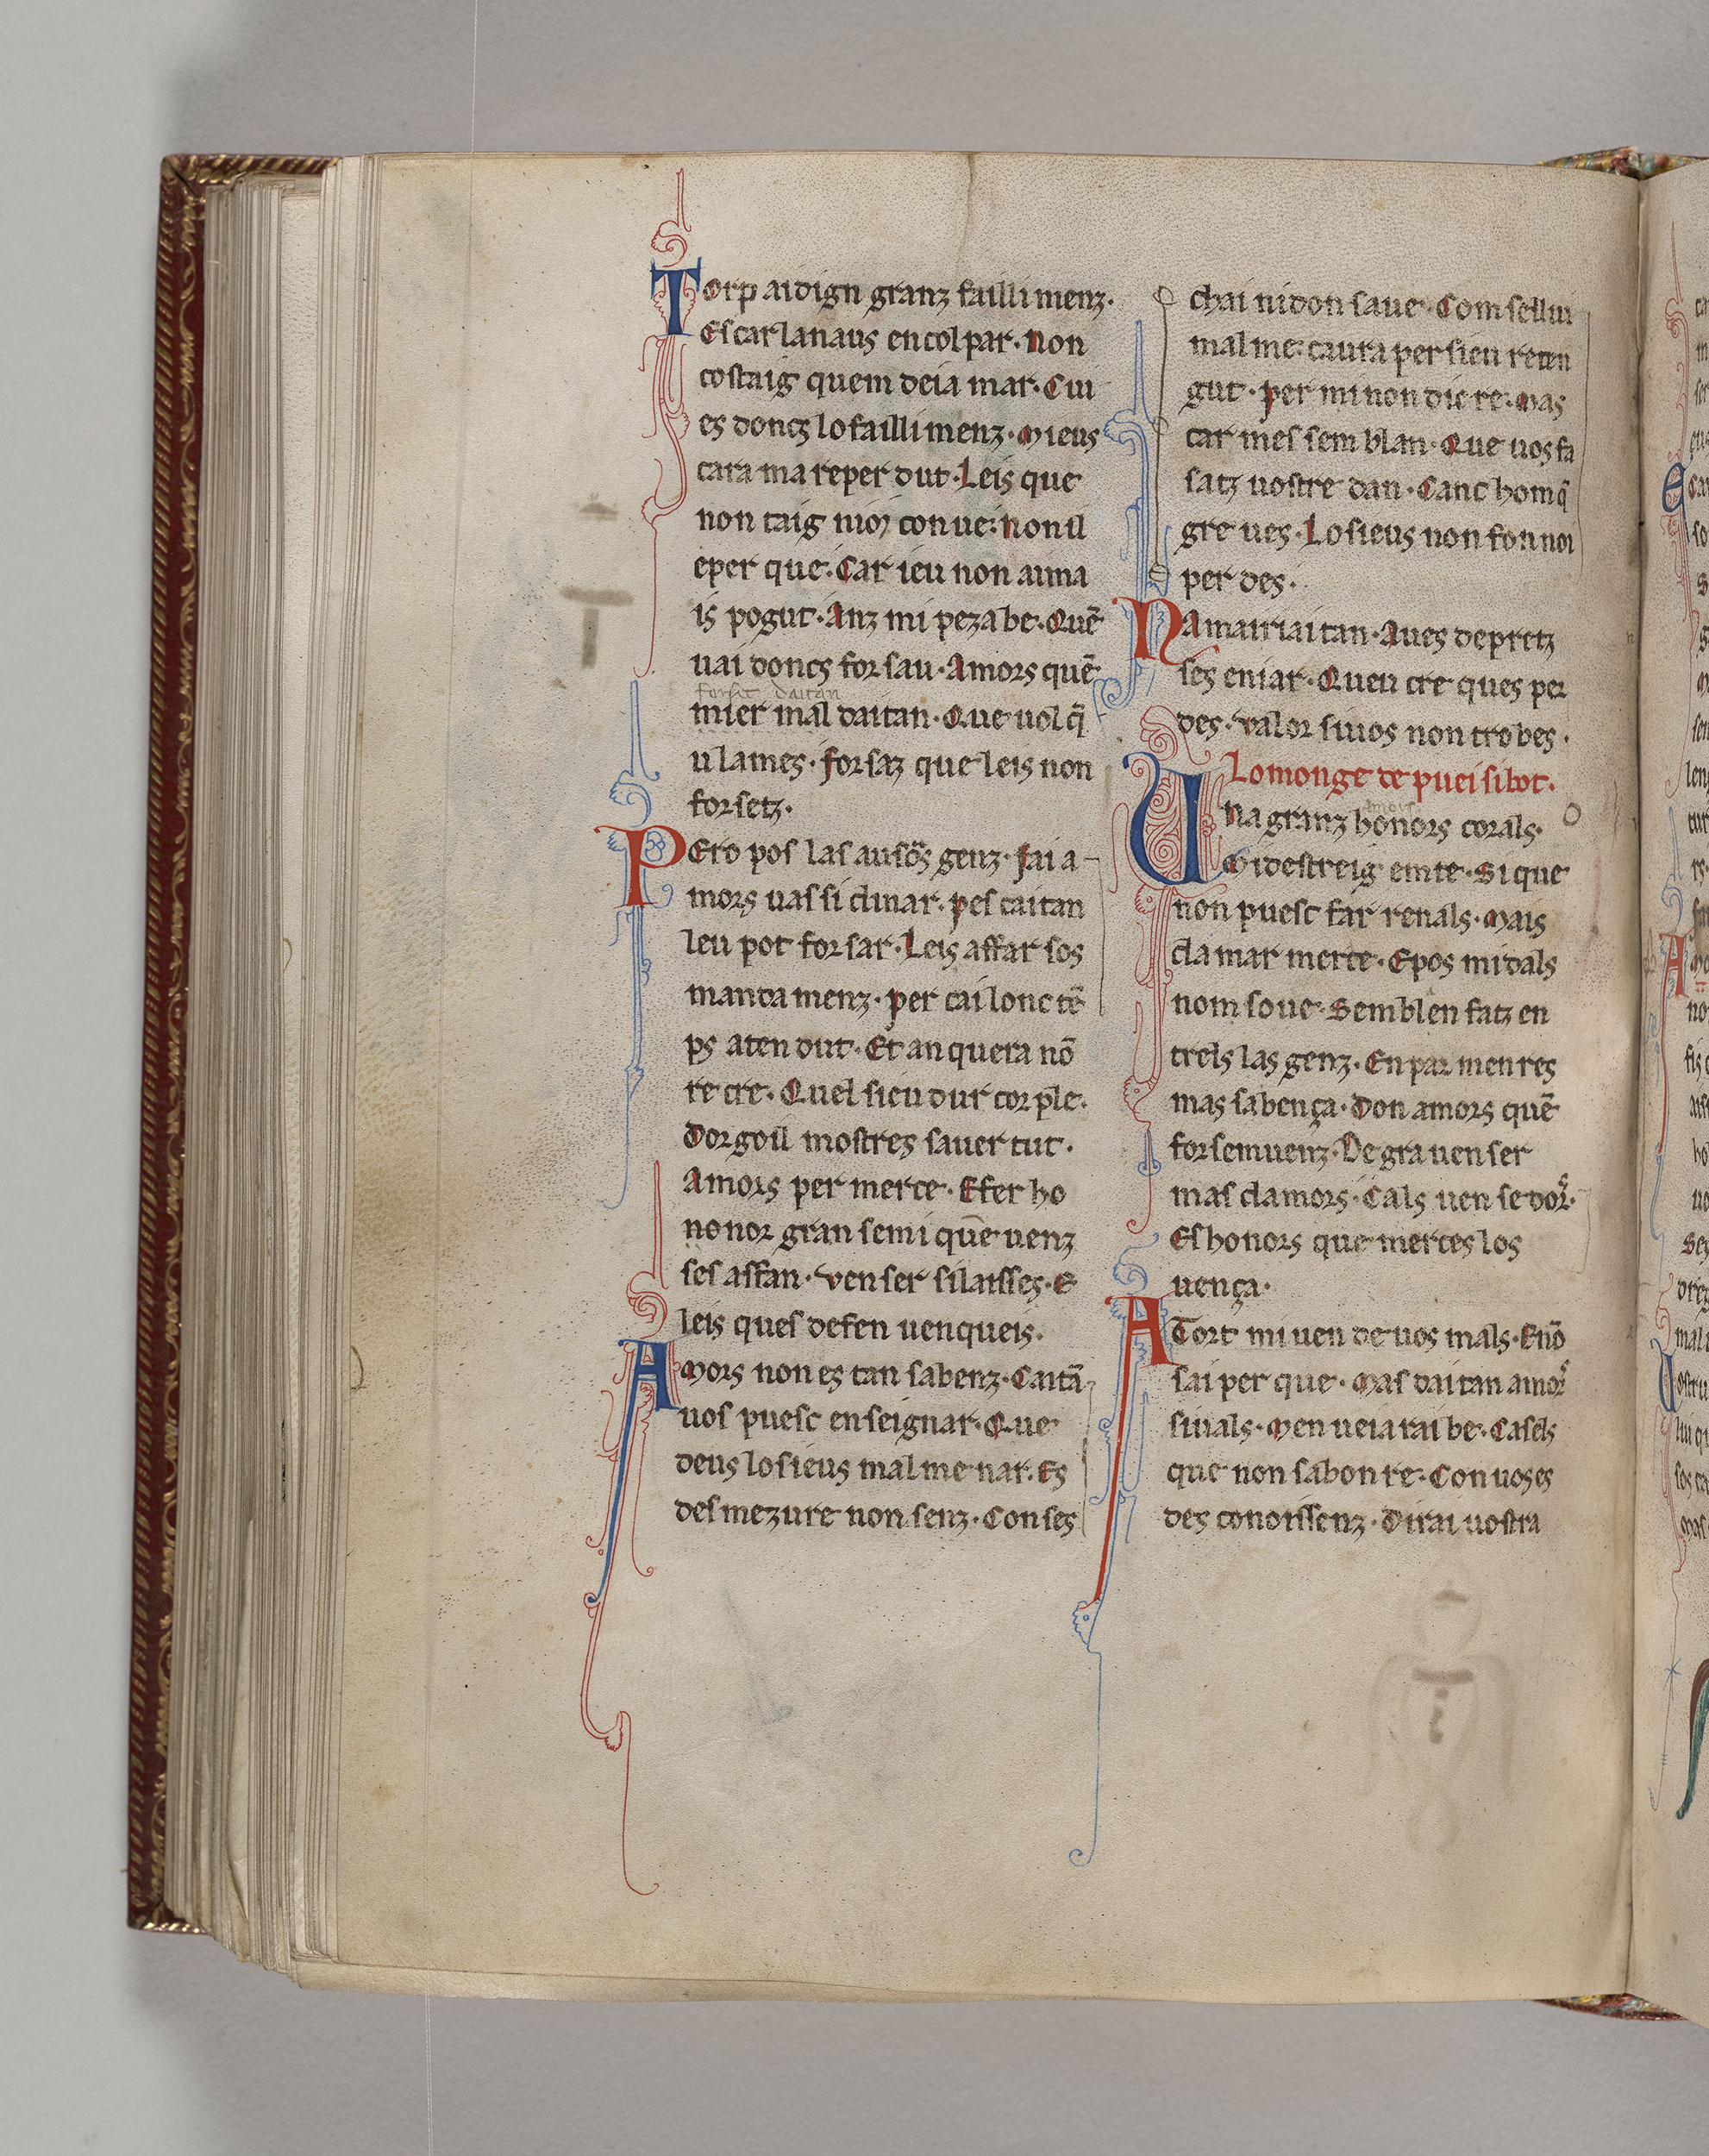 Torp aidign granz faillimenz·
Escar lanaus encolpar· Non
costaig quem deia mar· Cui
es doncs lo faillimenz· Mieus
cara ma reper dut· Leis que
non taig nioi conue· non il
eper que· Car ieu non auma
is pogut· Anz mi peza be· Quē
uai doncs for sau· Amors quē
forsit daitan
mier mal daitan· Que uol q̄
u lames· forsaz que leis non
forsetz·
Pero pos las ausors genz· fai a
mors uas si clinar· pes taitan
leu pot forsar· Leis affar sos
manda menz· per tai lonc tē
ps aten dut· Et an quera nō
re cre· Quel sieu dur cor ple·
Dorgoil mostres sauer tut·
Amors per merce· E fer ho
nonor gran semi que uenz
ses affan· Venser silaisses· E
leis ques defen uenqueis·
Amors non es tan sabenz· Caitā
uos puesc enseignar· Que
deus lo sieus malme nar· Es
desmezure non senz· Con ses
chai ni don saue· Com sellui
malme· caura per sieu reten
gut· per mi non dic re· Mas
car mes sem blan· Que uos fa
satz uostre dan· Canc hom q̄
gre ues· Lo sieus non fon noi
per des·
Namairiai tan· Aues de pretz
ses eniar· Queu cre ques per
des· valor siuos non trobes·
Lo monge de puei sibot·
amors
Una granz honors corals·
Mi destreig em te· Si que
non puesc far renals· Mais
clamar merce· E pos midals
nom soue· Semblen fatz en
trels las genz· En par men res
mas sabença· Don amors quē
forsemuenz· De gra uen ser
mas clamors· Cals uen se dor·
Es honors que merces los
uença·
A Tort mi uen de uos mals· E nō
sai per que· Mas daitan amor
siuals· Men ueiarai be· Casels
que non sabon re· Con uos es
des conoissenz· Dirai uostra